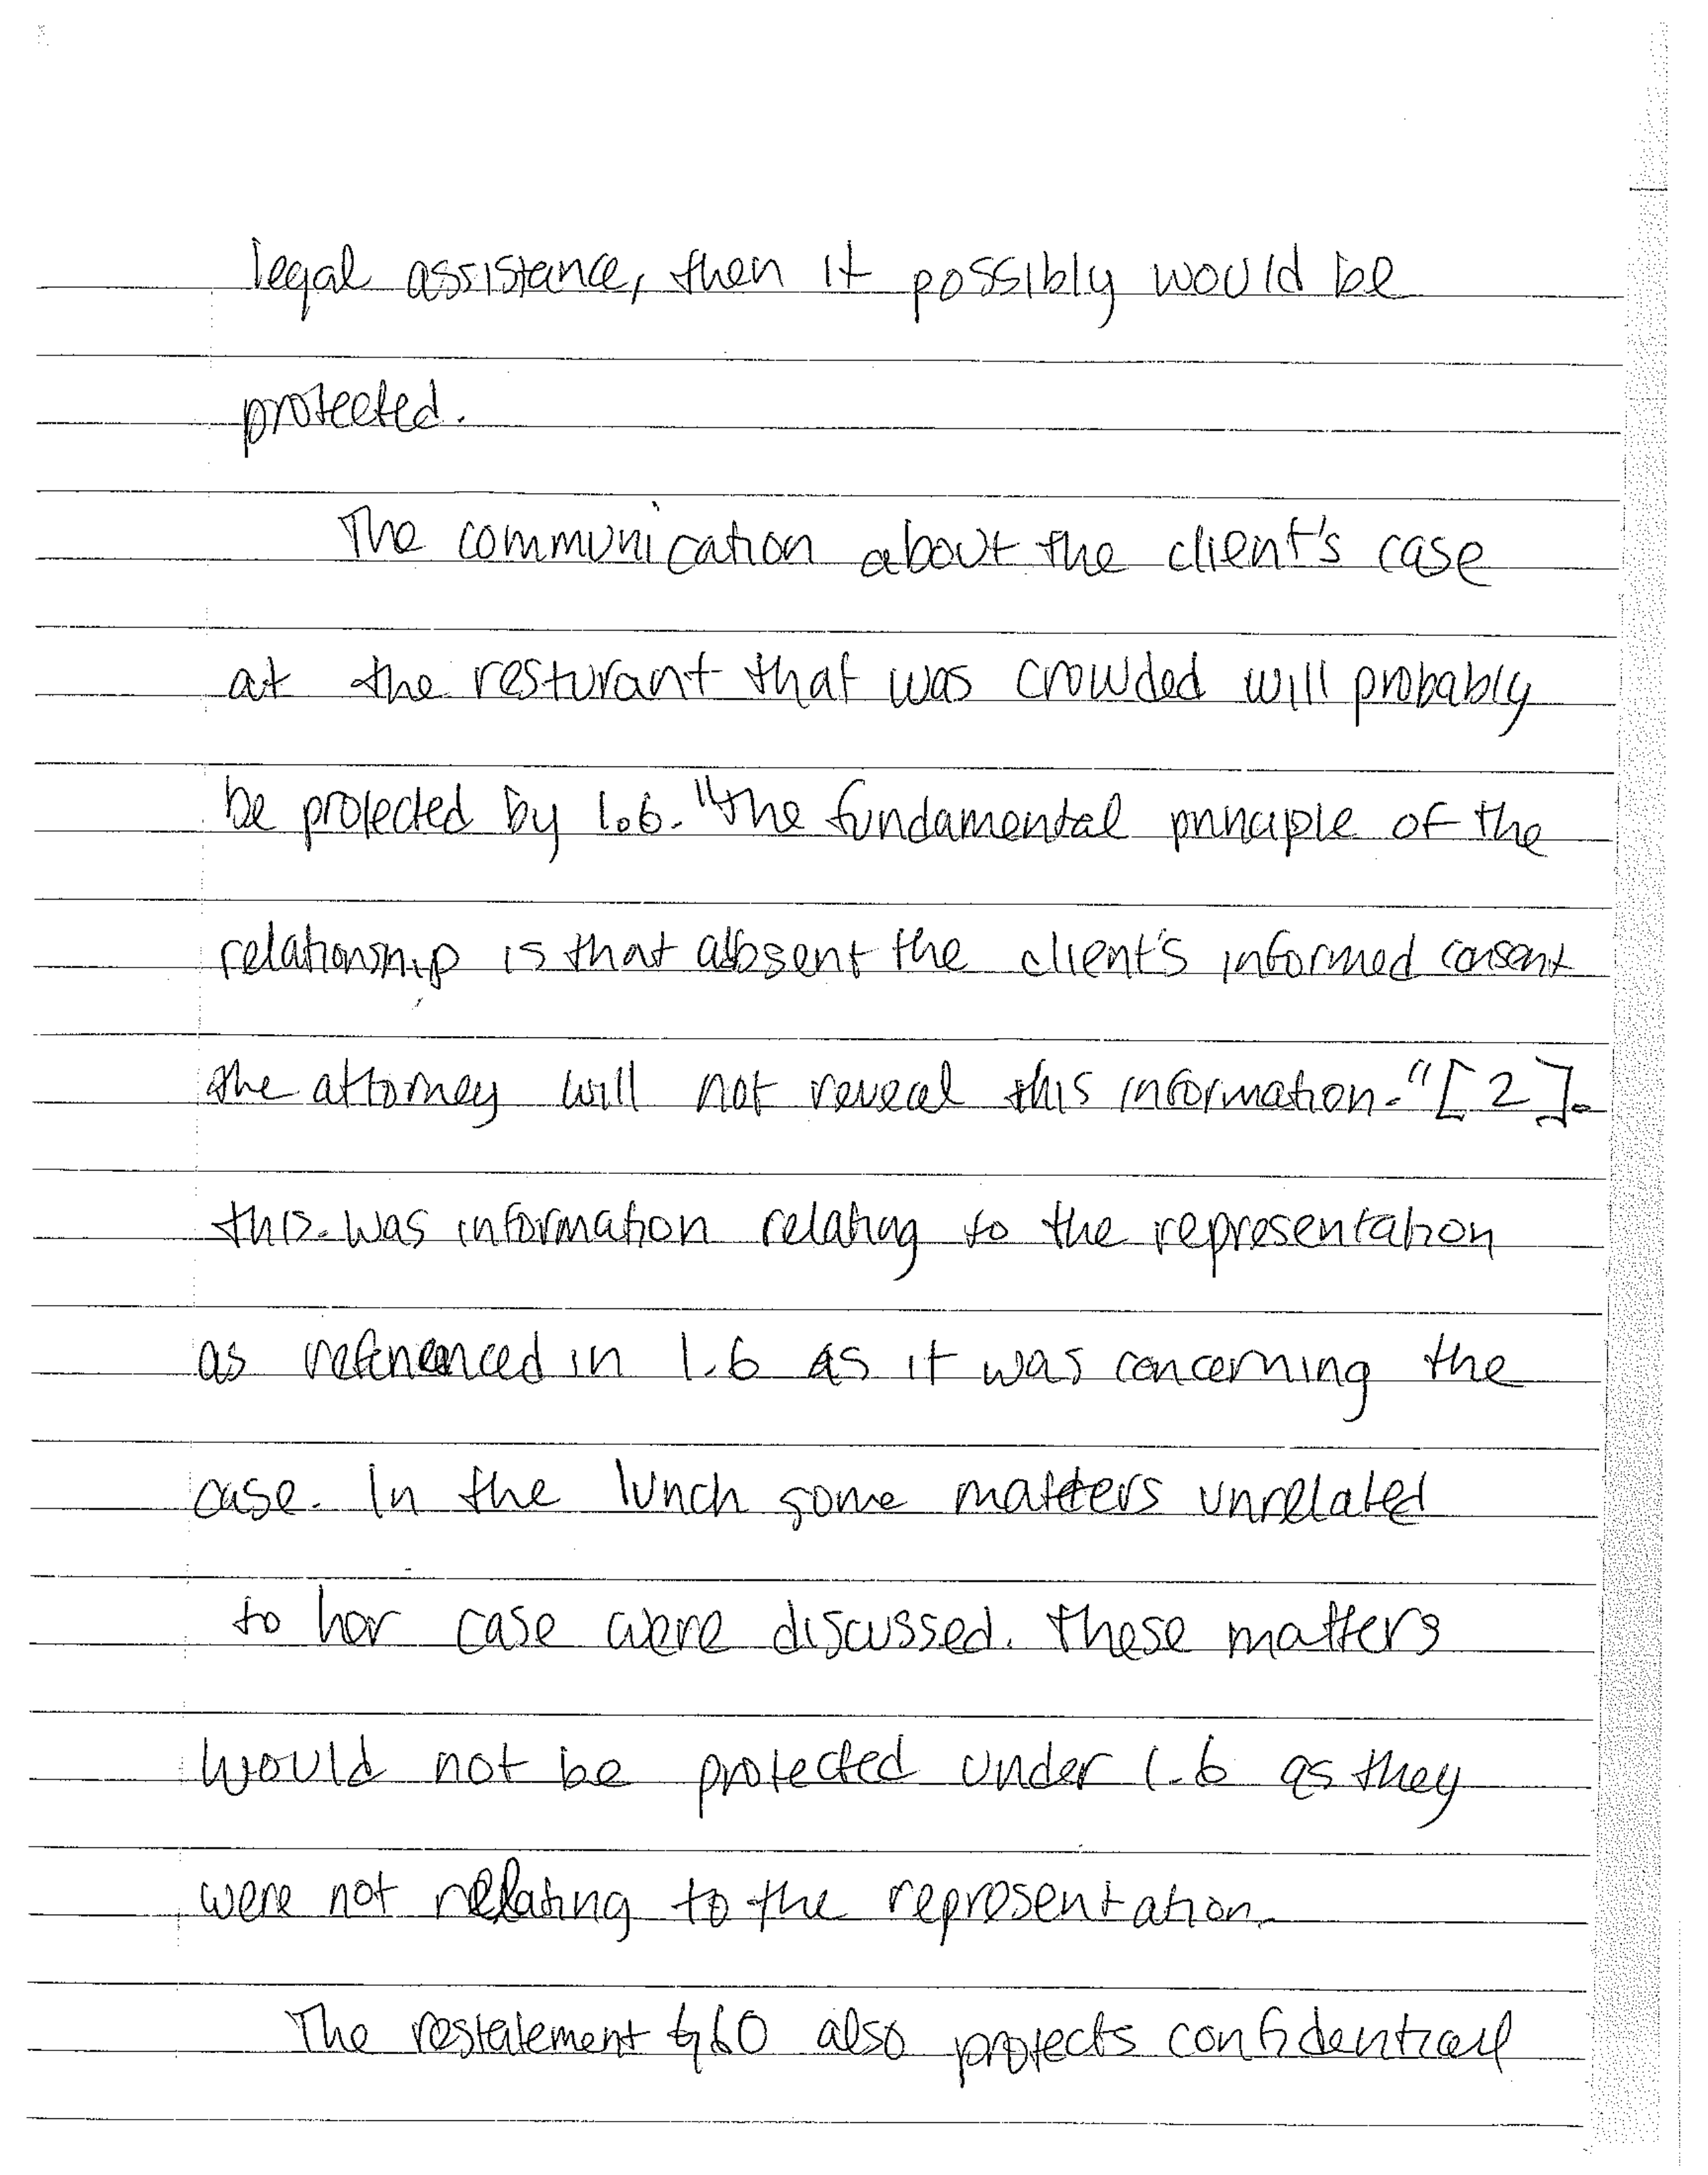 legal assistance, then it possibly would be
protected.
The communication about the client's case
at the resturant that was crowded will probably
be protected by 1.6. "the fundamental principle of the
relationship is that absent the client's informed consent
the attorney will not reveal this information." [2].
this was information relating to the representation
as referenced in 1.6 as it was concerning the
case. In the lunch some matters unrelated
to her case were discussed. These matters
would not be protected under 1.6 as they
were not relating to the representation.
The restatement §60 also protects confidential